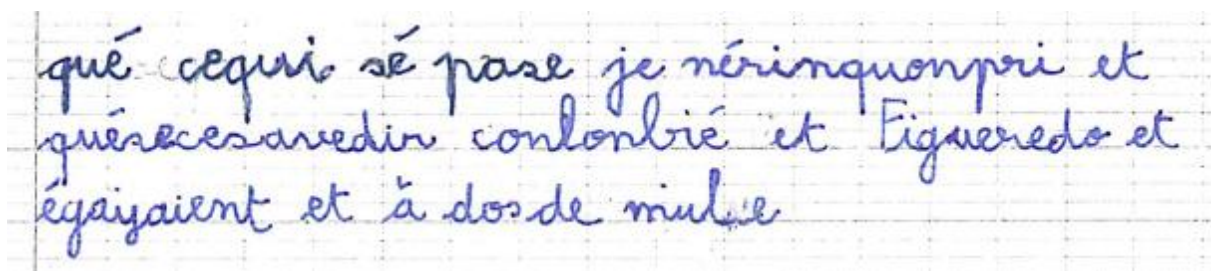 qué cequi sé pase je nérinquonpri et
quésecesavedir conlonbié et Figueredo et
égayaient et à dos de mule